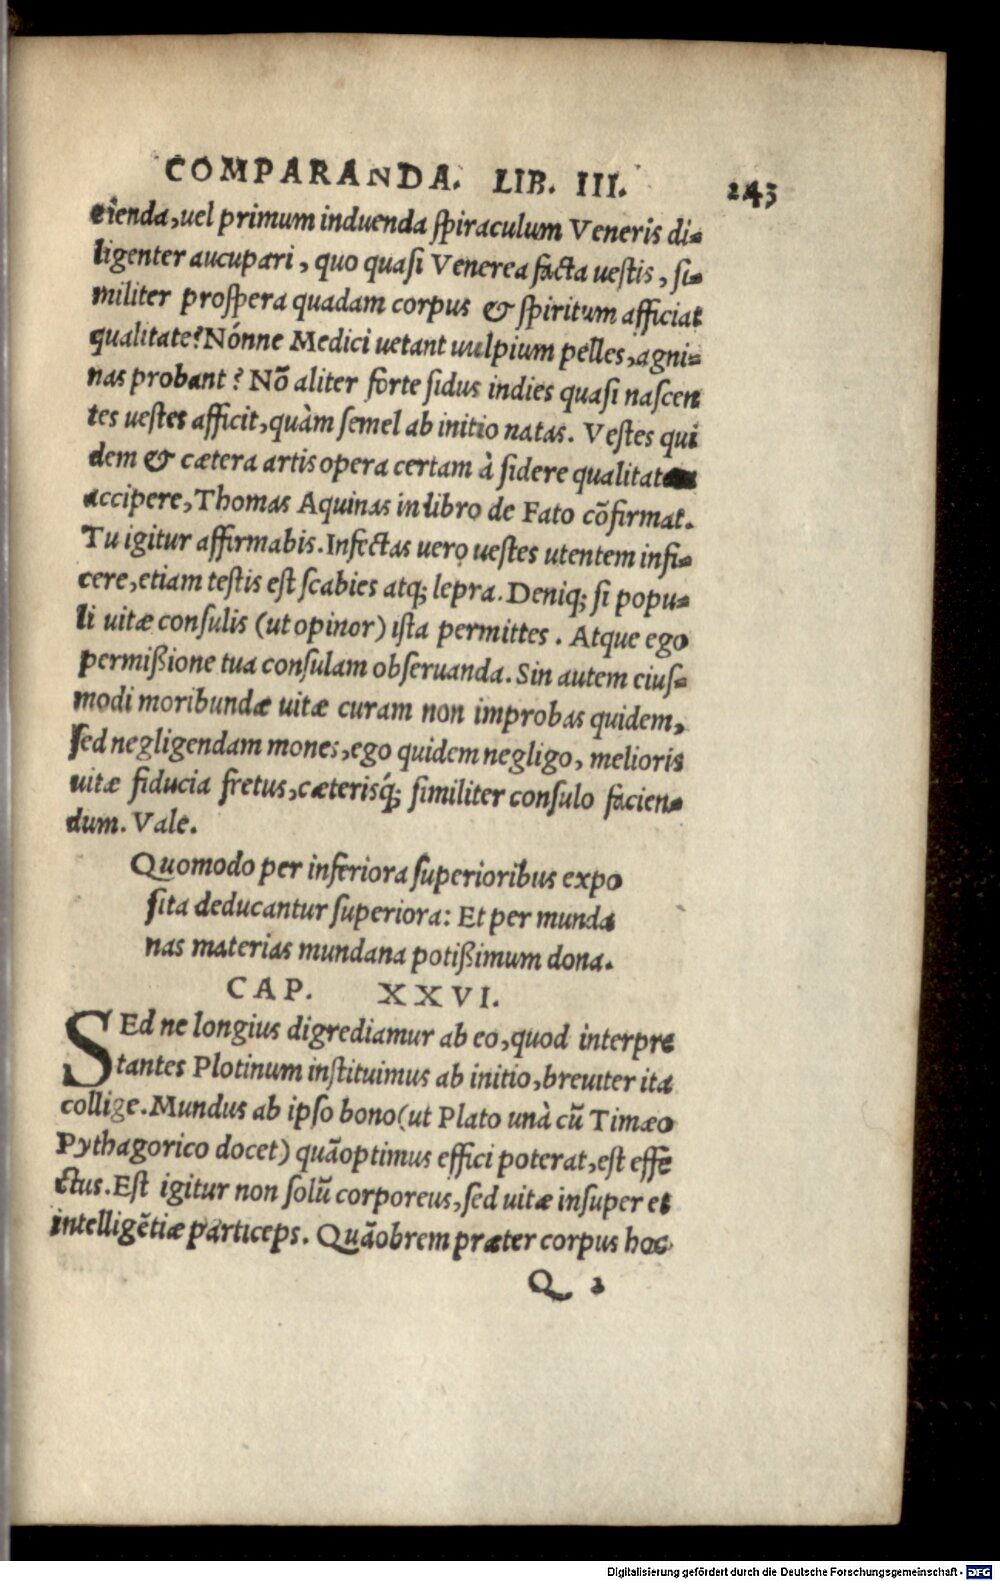 COMPARANDA. LIB. III. 243
cienda, uel primum induenda ſpiraculum Veneris di-
ligenter aucupari, quo quaſi Venerea facta ueſtis, ſi-
militer proſpera quadam corpus & ſpiritum afficiat
qualitate? Nónne Medici uetant uulpium pelles, agni-
nas probant? Nõ aliter forte ſidus indies quaſi naſcen
tes ueſtes afficit, quàm ſemel ab initio natas. Veſtes qui
dem & cætera artis opera certam à ſidere qualitatem
accipere, Thomas Aquinas in libro de Fato cõfirmat.
Tu igitur affirmabis. Infectas uero ueſtes utentem infi-
cere, etiam teſtis eſt ſcabies atq; lepra. Deniq; ſi popu-
li uitæ conſulis (ut opinor) iſta permittes. Atque ego
permißione tua conſulam obſeruanda. Sin autem eiuſ-
modi moribundæ uitæ curam non improbas quidem,
ſed negligendam mones, ego quidem negligo, melioris
uitæ fiducia fretus, cæterisq́; ſimiliter conſulo facien-
dum. Vale.
Quomodo per inferiora ſuperioribus expo
ſita deducantur ſuperiora: Et per munda
nas materias mundana potißimum dona.
CAP. XXVI.
SEd ne longius digrediamur ab eo, quod interpre
tantes Plotinum inſtituimus ab initio, breuiter ita
collige. Mundus ab ipſo bono (ut Plato unà cũ Timæo
Pythagorico docet) quãoptimus effici poterat, eſt effe
ctus. Eſt igitur non ſolũ corporeus, ſed uitæ inſuper et
intelligẽtiæ particeps. Quãobrem præter corpus hoc
Q 2
Digitalisierung gefördert durch die Deutsche Forschungsgemeinschaft - DFG